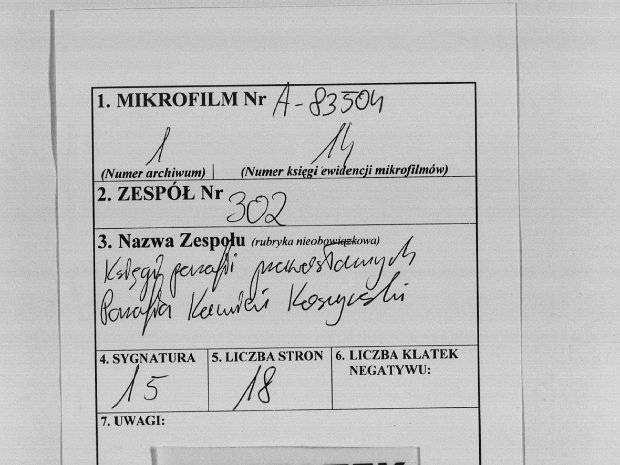 1. MIKROFILM Nr A-83504
1 14
(Numer archiwum) (Numer księgi ewidencji mikrofilmów)
2. ZESPÓŁ Nr 302
3. Nazwa Zespołu (rubryka nieobowiązkowa)
Księgi parafii prawosławnych
Parafia Kamień Koszyrski
4. SYGNATURA 5. LICZBA STRON 6. LICZBA KLATEK
NEGATYWU:
15 18
7. UWAGI: